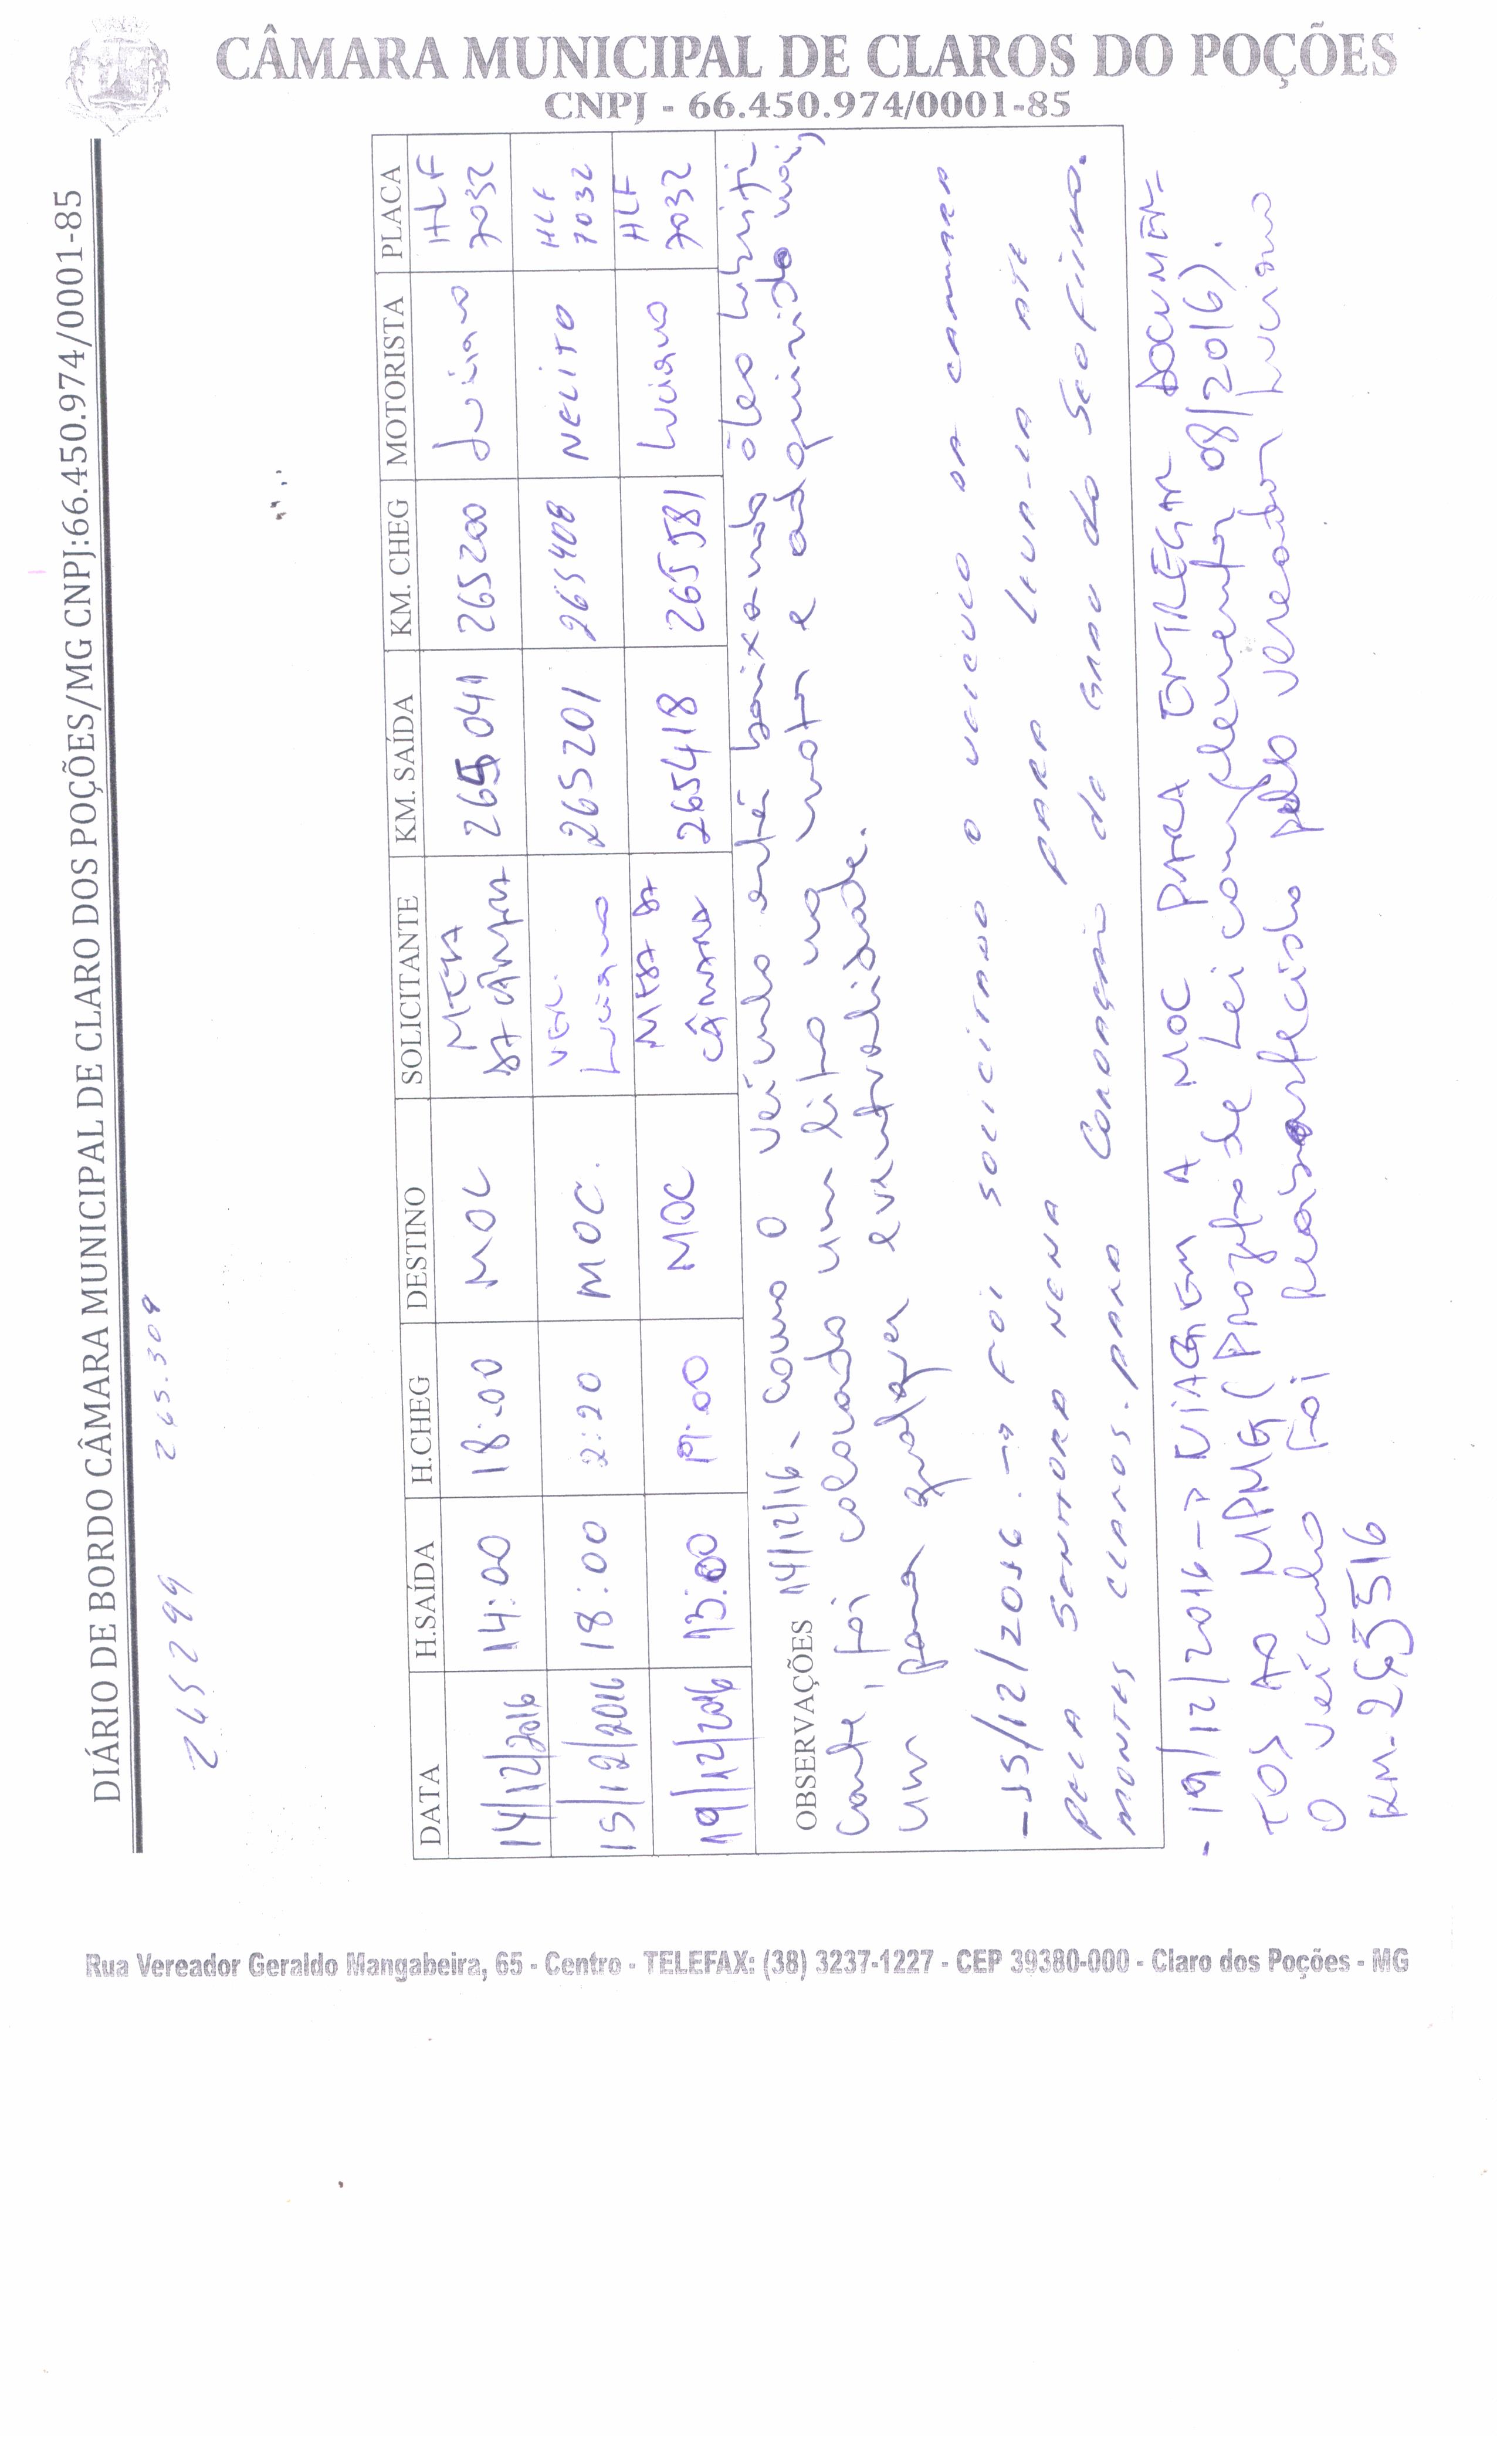 CÂMARA MUNICIPAL DE CLAROS DO POÇÕES
CNPJ - 66.450.974/0001-85
DIÁRIO DE BORDO CÂMARA MUNICIPAL DE CLARO DOS POÇÕES/MG CNPJ:66.450.974/0001-85
265299 265.309
DATA H.SAÍDA H.CHEG DESTINO SOLICITANTE KM. SAÍDA KM. CHEG MOTORISTA PLACA
14/12/2016 14:00 18:00 MOC MESA DA CÂMARA 265041 265200 Luciano HLF 7032
15/12/2016 18:00 2:20 MOC. VER. Luciano 265201 265408 NELITO HLF 7032
19/12/2016 13:00 19:00 MOC MESA DA CÂMARA 265418 265581 Luciano HLF 7032
OBSERVAÇÕES 14/12/16 - Como o veículo está baixando óleo lubrifi-
cante, foi colocado um litro no motor e adquirido mais
um para qualquer eventualidade.
-15/12/2016. -> FOI SOLICITADO O VEICULO DA CAMARA
PELA SENHORA NENA PARA LEVA-LA ATE
MONTES CLAROS. PARA do do São
- 19/12/2016 -> VIAGEM A MOC PARA ENTREGAR DOCUMEN-
TOS AO MPMG (Projeto de Lei complementar 08/2016).
O veículo foi reabastecido pelo vereador Luciano
KM. 265516
Rua Vereador Geraldo Mangabeira, 65 - Centro - TELEFAX: (38) 3237-1227 - CEP 39380-000 - Claro dos Poções - MG